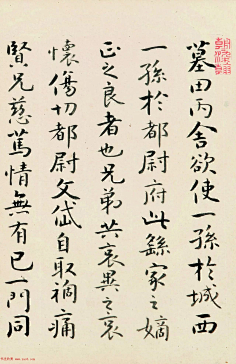 墓田丙舍欲使一孫於城西
一孫於都尉府此繇家之嫡
正之良者也兄弟共哀異之哀
懷傷切都尉文岱自取禍痛
賢兄慈篤情無有已一門同